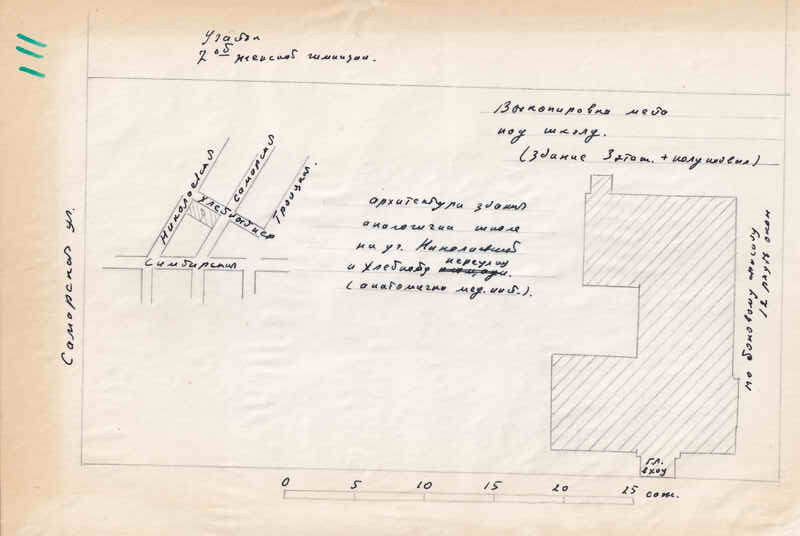 111
Усадьба
2ой женской гимназии.
Выкопировка места
под школу.
(здание 3 этаж. + полуподвал)
Николаевская
Самарская
Троицкая.
Хлебный пер
Симбирская
архитектура здания
аналогична школе
на уг. Николаевской
переулку
и Хлебному площади.
(анатомичка мед. инст.).
Самарская ул.
по боковому фасаду
12 рядов окон
гл.
вход
0 5 10 15 20 25 саж.